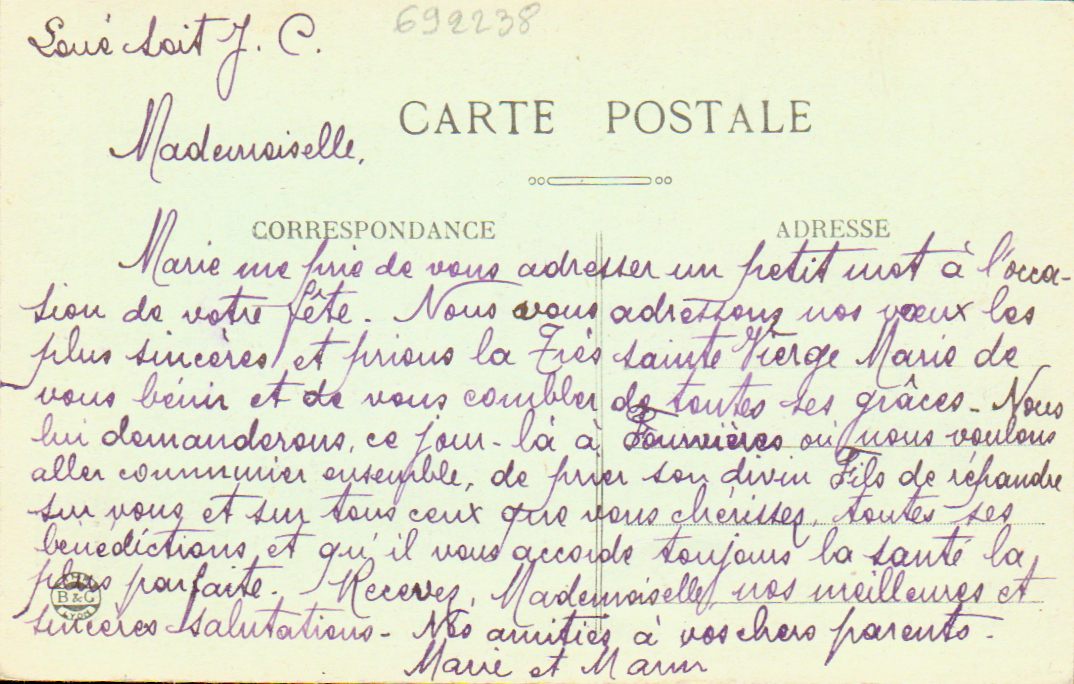 692238
Loué soit J. C.
CARTE POSTALE
Mademoiselle,
CORRESPONDANCE
ADRESSE
Marie me prie de vous adresser un petit mot à l'occa-
sion de votre fête. Nous vous adressons nos vœux les
plus sincères et prions la Très sainte Vierge Marie de
vous bénir et de vous combler de toutes ses grâces. Nous
lui demanderons, ce jour-là à Fourvières où nous voulons
aller communier ensemble, de prier son divin Fils de répandre
sur vous et sur tous ceux que vous chérissez, toutes ses
bénédictions et qu'il vous accorde toujours la santé la
plus parfaite. Recevez, Mademoiselle, nos meilleures et
B & G
LYON
sincères salutations. Nos amitiés à vos chers parents.
Marie et